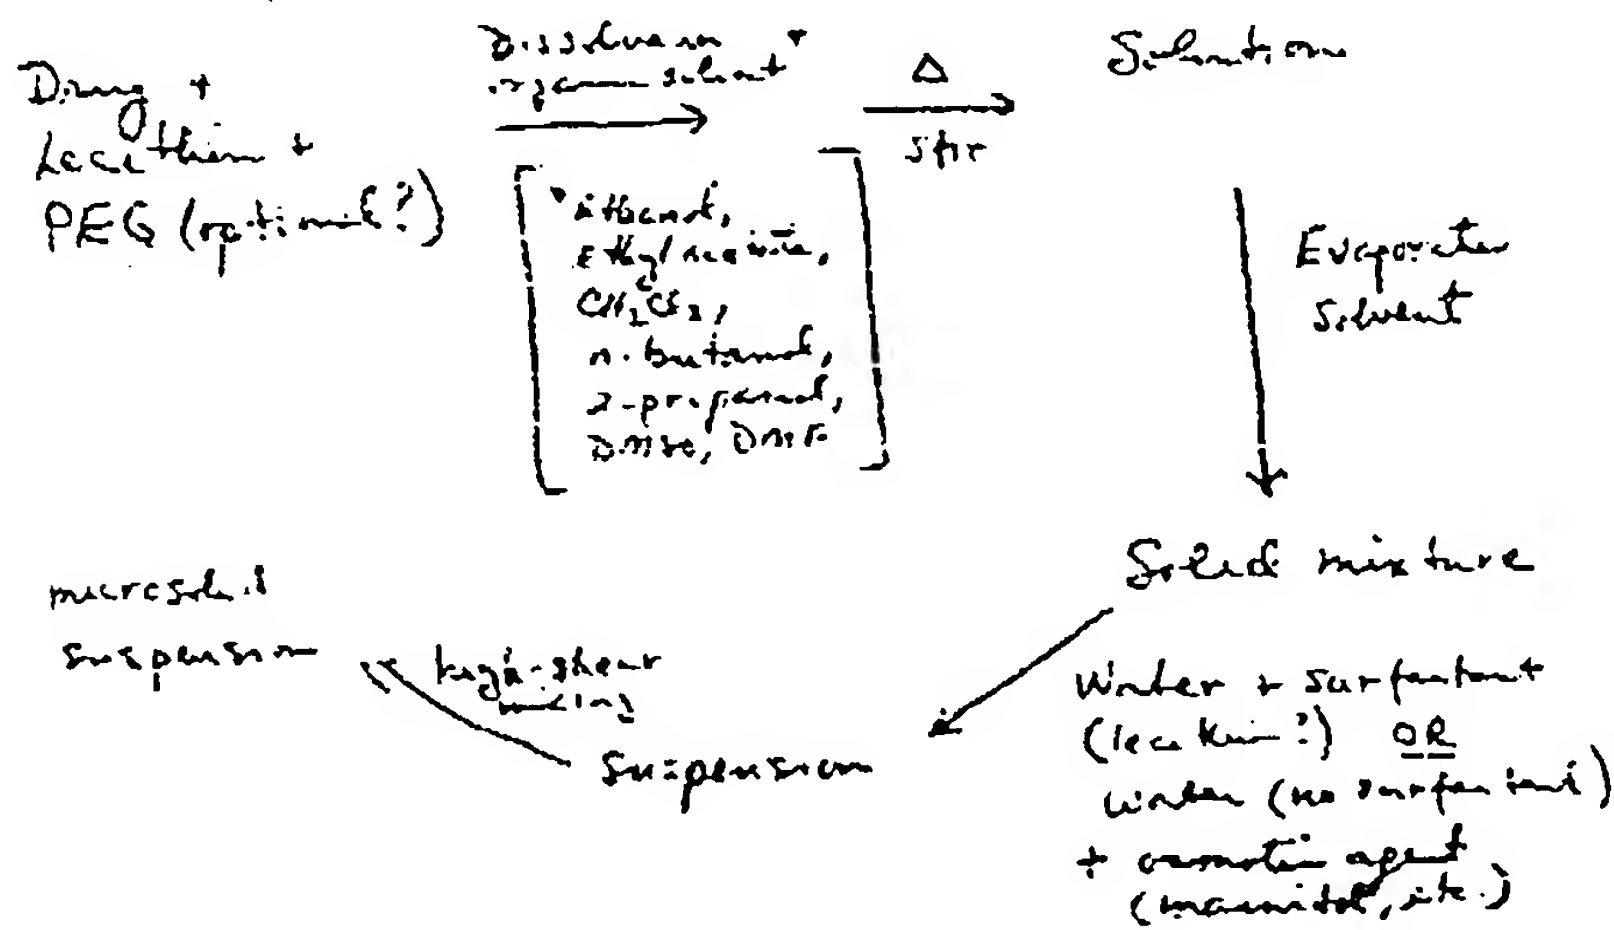 Drug +
Lecithin +
PEG (optional?)
Dissolve in
organic solvent *
Δ
stir
Solution
* Ethanol,
Ethyl acetate,
CH2Cl2,
n-butanol,
2-propanol,
DMSO, DMF
Evaporate
solvent
Solid mixture
Water + surfactant
(lecithin?) OR
water (no surfactant)
+ osmotic agent
(mannitol, etc.)
suspension
high-shear
mixing
microsolid
suspension